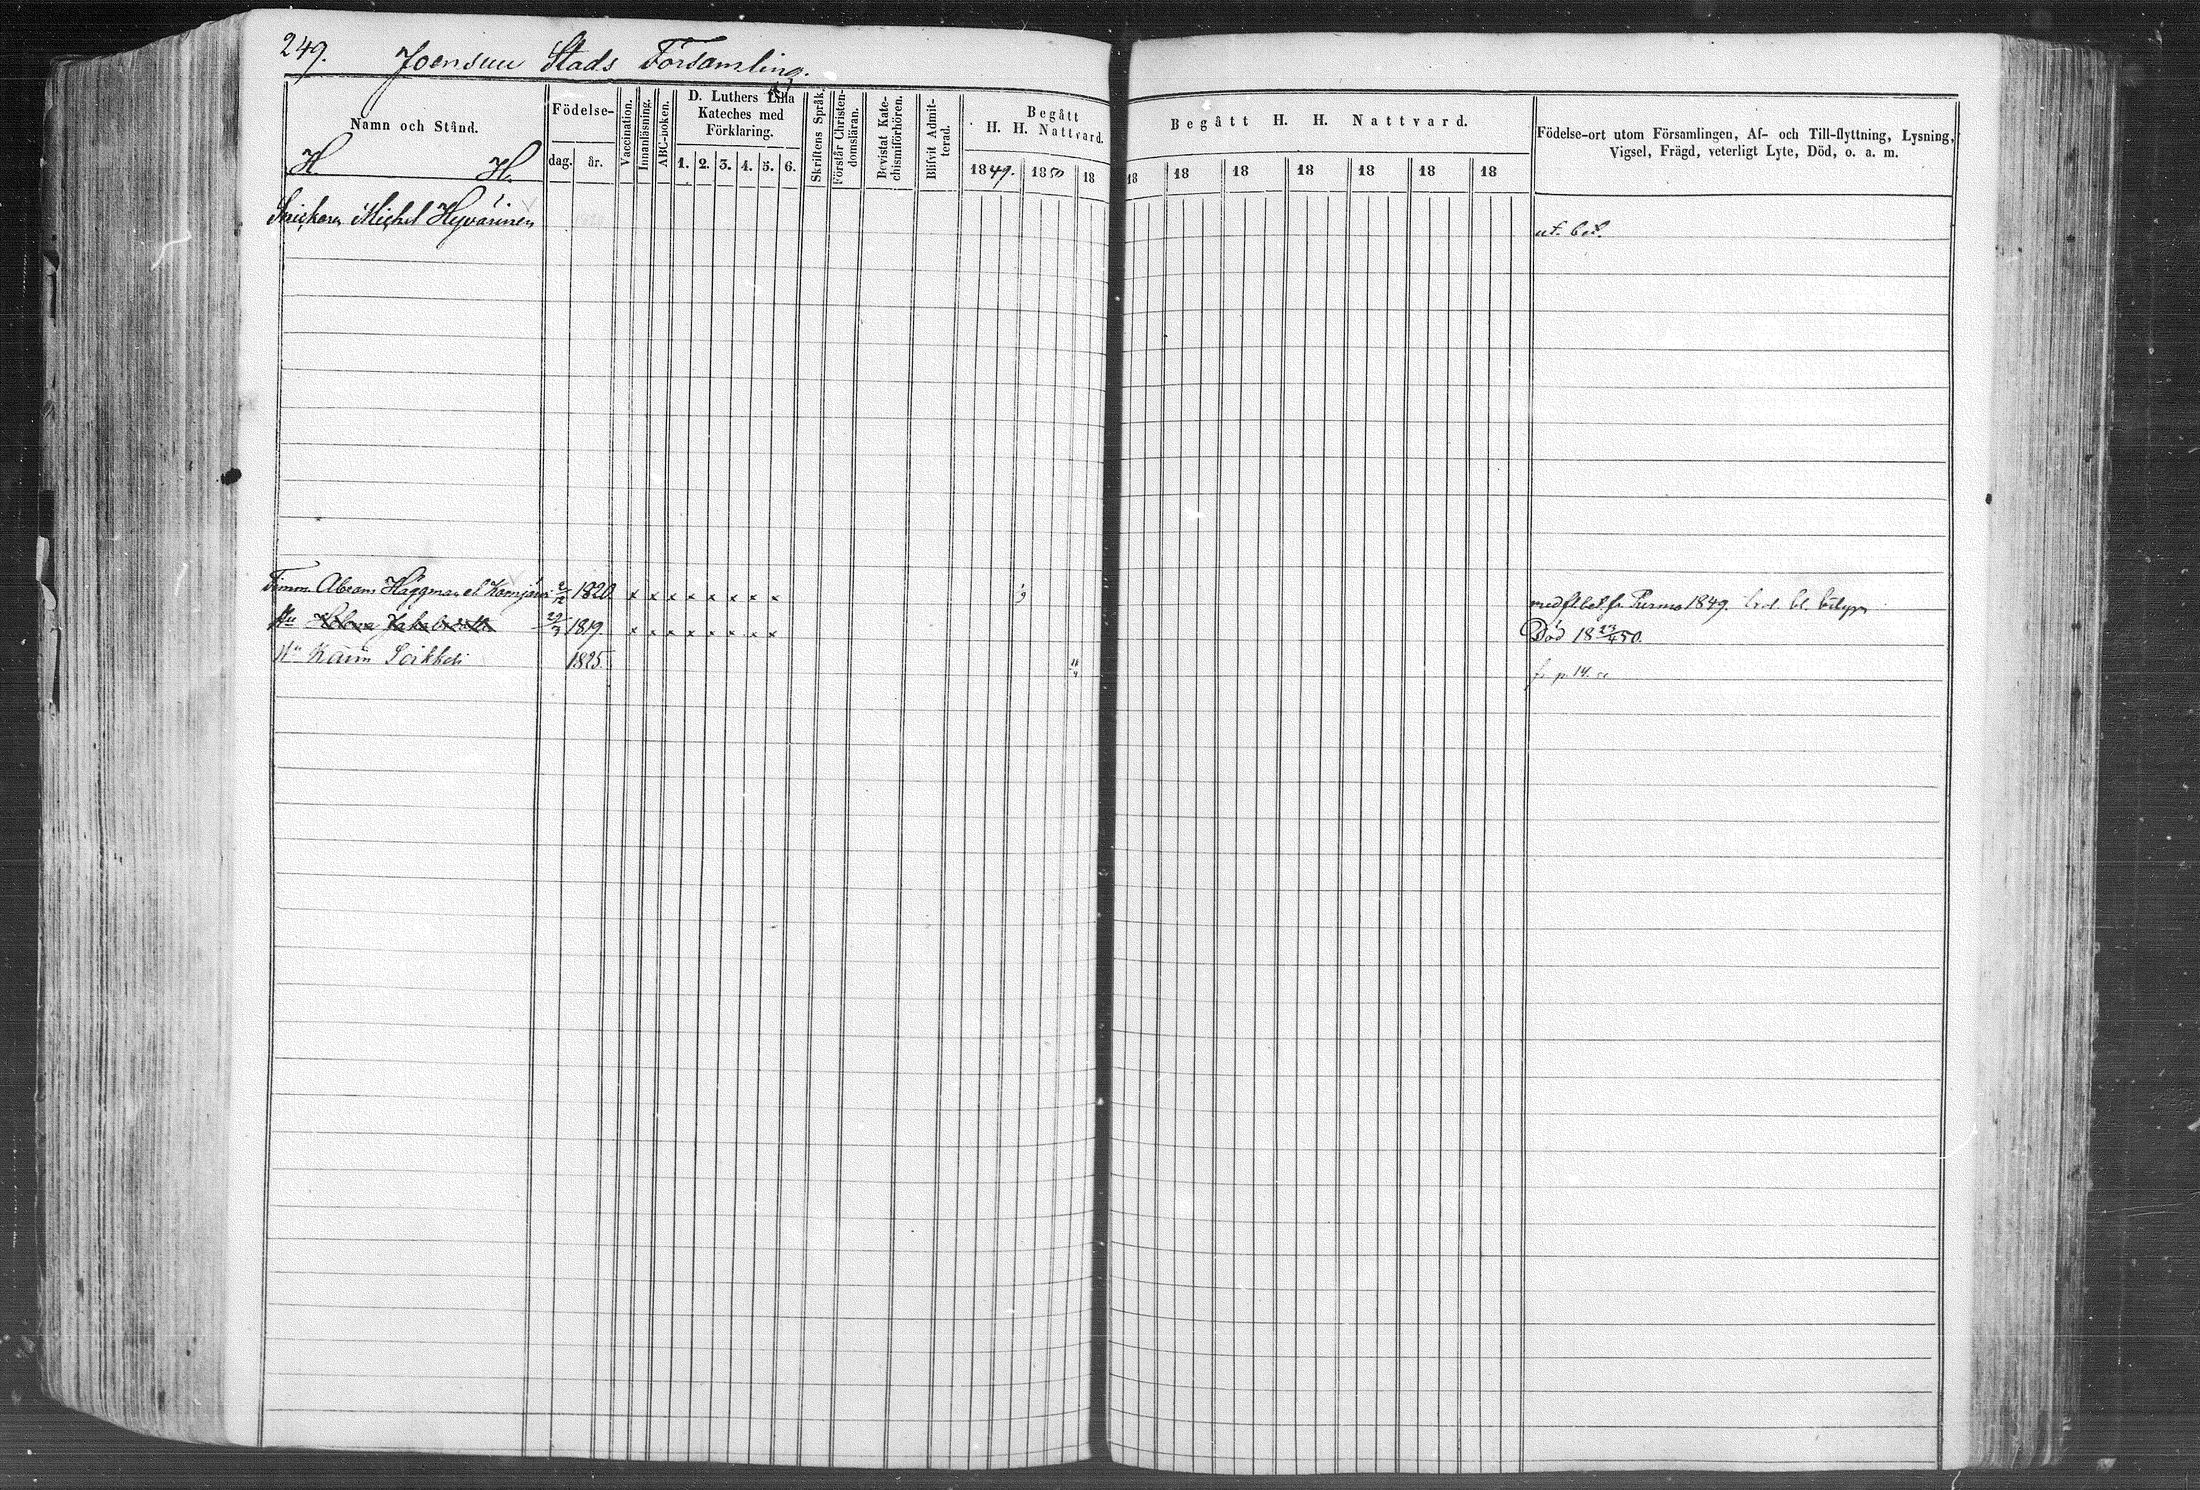 249. Joensuu Stads Församling.
Namn och Stånd.
H H.
Födelse-
dag. år.
Vaccination.
Innanläsning.
ABC-boken.
D. Luthers Lilla
Kateches med
Förklaring.
1. 2. 3. 4. 5. 6.
Skriftens Språk.
Förstår Christen-
domsläran.
Bevistat Kate-
chismiförhören.
Blifvit Admit-
terad.
Begått
H. H. Nattvard.
1849. 1850 18
Begått H. H. Nattvard.
18 18 18 18 18 18 18
Födelse-ort utom Församlingen, Af- och Till-flyttning, Lysning,
Vigsel, Frägd, veterligt Lyte, Död, o. a. m.
Snickaren Michel Hyvärinen ut. bet.
Timm. Abram Häggman 2/12 1820. x x x x x x x x med fl. bet. fr. Purmo 1849.
Hu Helena 29/3 1819. x x x x x x x x Död 18 23/4 50.
Hu Karin 1825. 11/4 fr. p. 14.